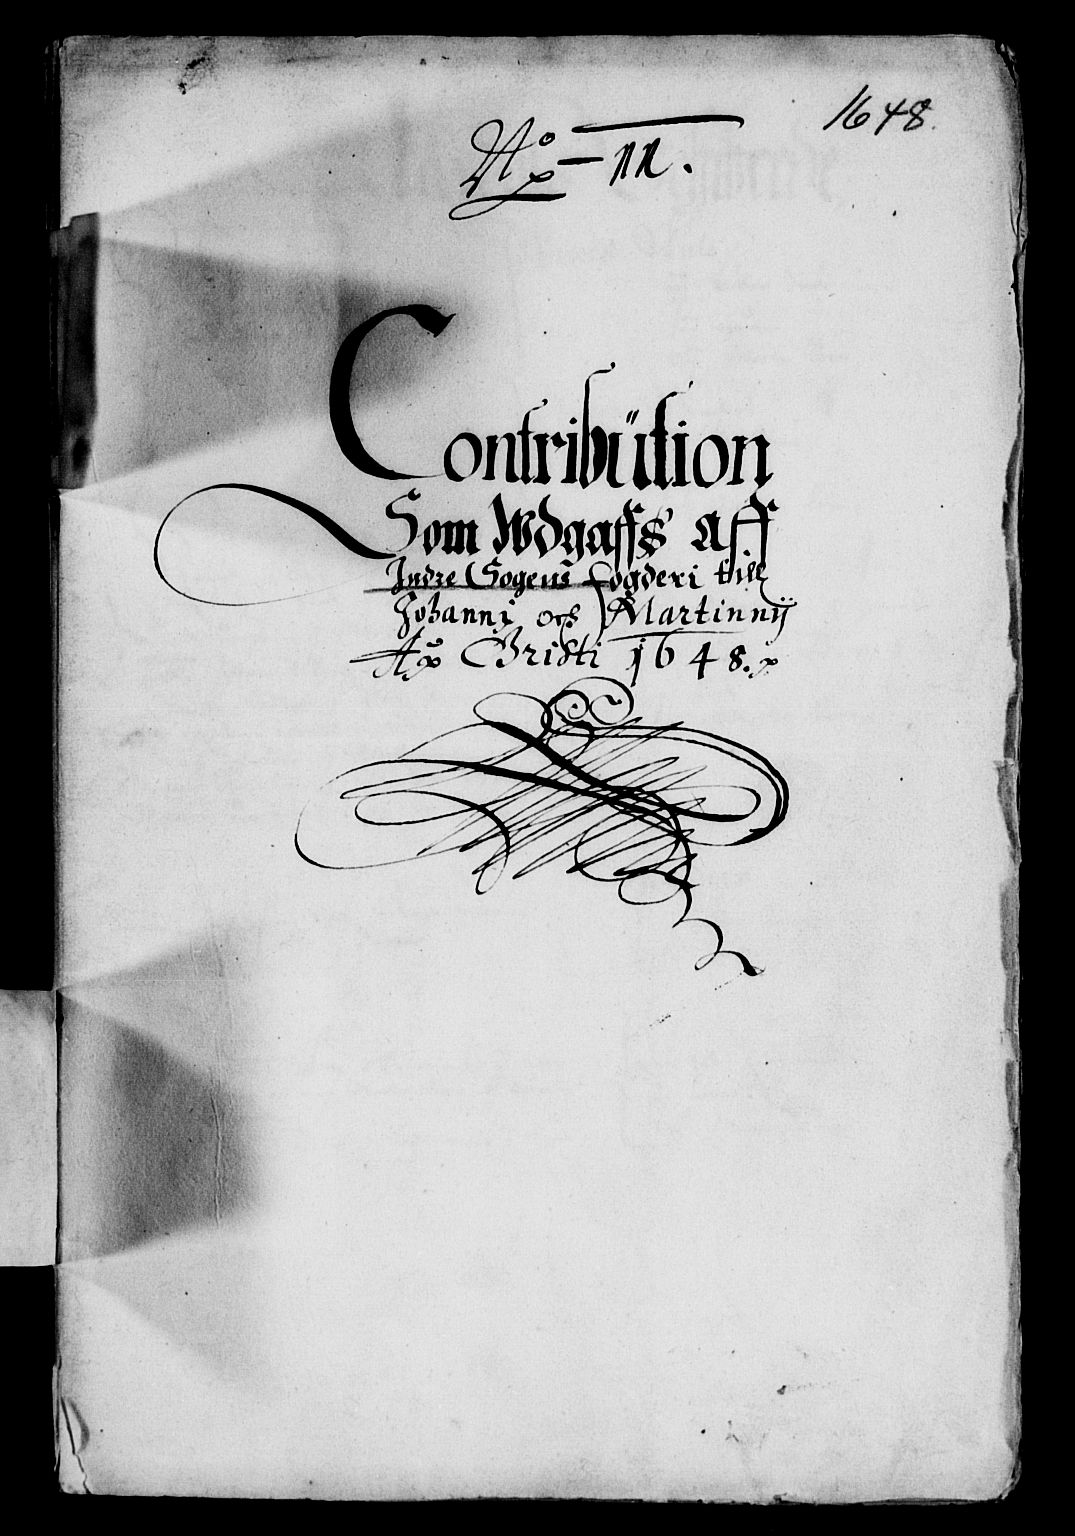 1648.
No – 11.
Contribütion
Som Wdgaffs aff
Indre Sogens fogderi till
Johannj och Martinnÿ
Ao Christi 1648.